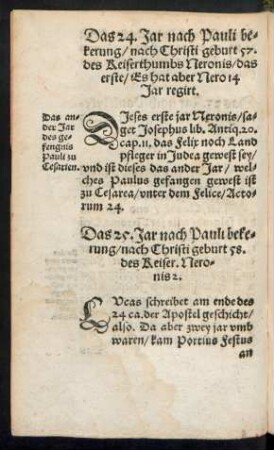 Das 24. Jar nach Pauli be-
kerung/nach Christi geburt 57.
des Keiserthumbs Neronis/das
erste/Es hat aber Nero 14
Jar regirt.
Das an-
der Jar
des ge-
fengnis
Pauli zu
Cesarien.
DIeses erste jar Neronis/sa-
get Josephus lib. Antiq.20.
cap.11. das Felix noch Land
pfleger in Judea gewest sey/
vnd ist dieses das ander Jar/ wel-
ches Paulus gefangen gewest ist
zu Cesarea/vnter dem Felice/Acto-
rum 24.
Das 25. Jar nach Pauli beke-
rung/nach Christi geburt 58.
des Keiser. Nero-
nis 2.
LVcas schreibet am ende des
24 ca. der Apostel geschicht/
also. Da aber zwey jar vmb
waren/kam Portius Festus
an